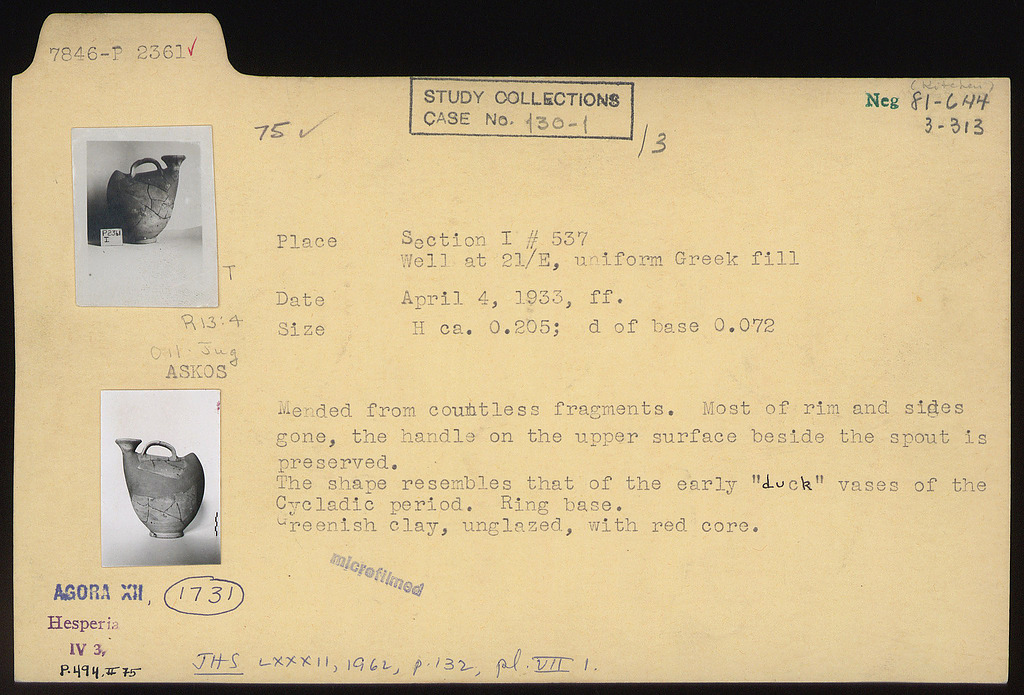 7846-P 2361✓
(Kitchen)
STUDY COLLECTIONS
CASE No. 130-1
Neg 81-644
3-313
75 ✓
/3
P2361
I
Place Section I # 537
Well at 21/E, uniform Greek fill
T
Date April 4, 1933, ff.
Size H ca. 0.205; d of base 0.072
R13:4
Oil-Jug
ASKOS
Mended from countless fragments. Most of rim and sides
gone, the handle on the upper surface beside the spout is
preserved.
The shape resembles that of the early "duck" vases of the
Cycladic period. Ring base.
Greenish clay, unglazed, with red core.
microfilmed
AGORA XII, 1731
Hesperia
IV 3,
P.494, # 75
JHS LXXXII, 1962, p.132, pl. VII 1.